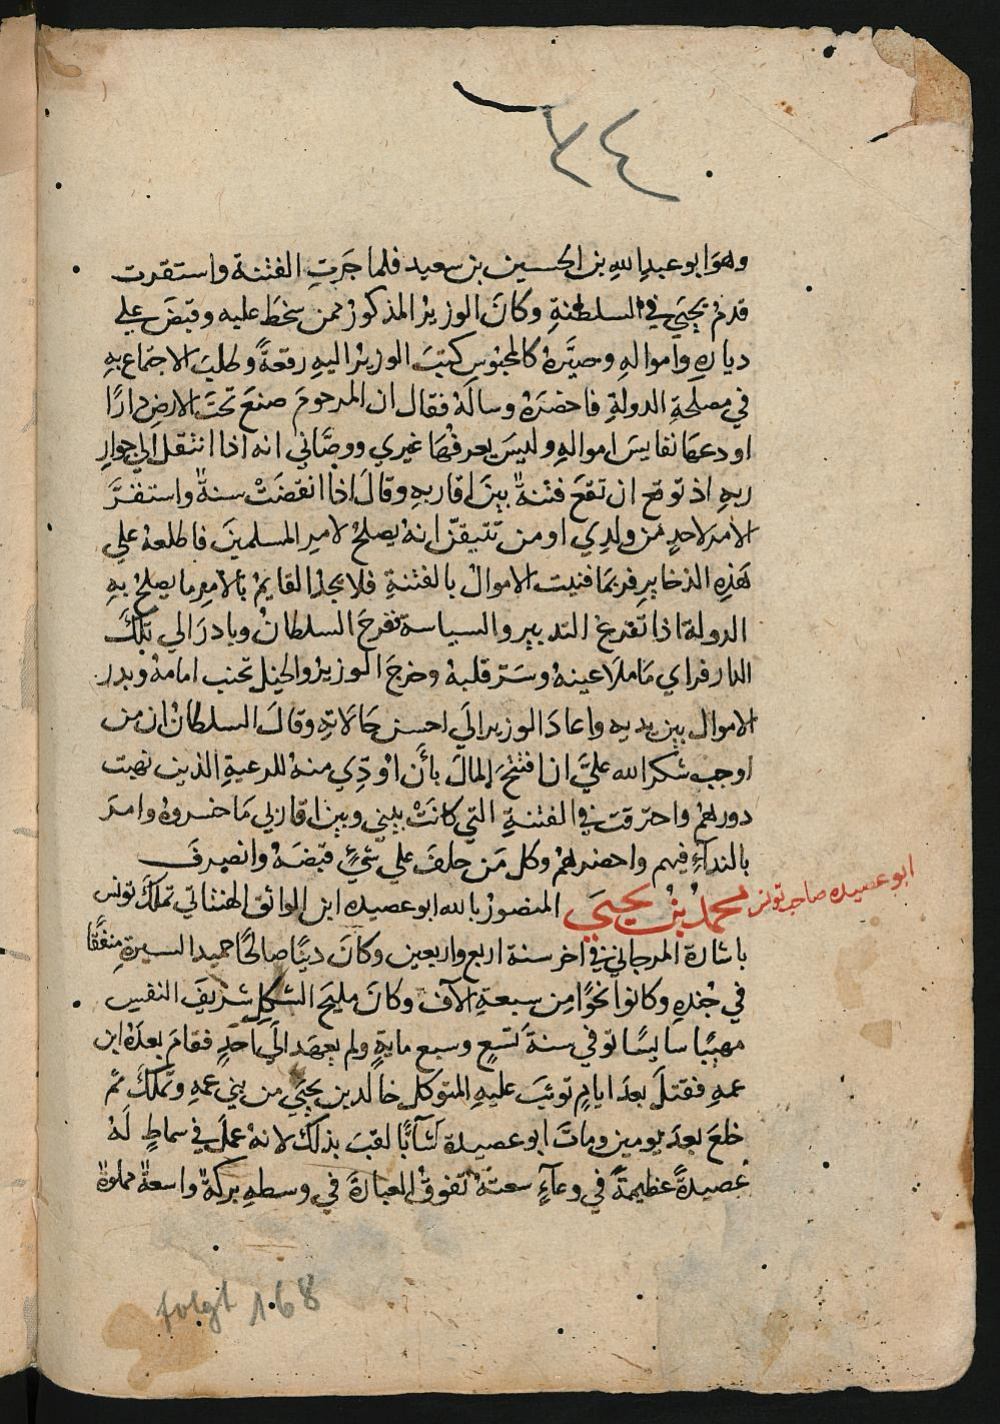 ٧٤
وهوَ ابو عبدِ اللهِ بن الحسين بن سعيد فلما جَرَتِ الفتنة واستقرت
قدمُ يحيَي في السلطنةِ وكانَ الوزيرُ المذكورُ ممن سَخطَ عليه وقبَضَ علي
ديارهِ واموالهِ وصيَّرَهُ كالمحبُوسِ كتبَ الوزيرُ اليهِ رقعةً وطلبَ الاجتماع بهِ
في مصلحةِ الدولةِ فاحضرَهُ وسالَهُ فقال ان المرحومَ صنعَ تحتَ الارضِ دارًا
اودعهَا نفايسَ اموالهِ وليسَ يعرفُهَا غيري ووصَّاني انه اذا انتقل الي جوارِ
ربهِ اذ توقع ان تقعَ فتنةٌ بينَ اقاربهِ وقالَ اذا انقضَتْ سنةٌ واستقرَّ
الامر لاحدٍ مَن ولدِي او من تتيقنُ انهُ يصلحُ لامرِ المسلمينَ فاطلعهُ علي
هَذِهِ الذخايرِ فربمَا فنيت الاموالُ بالفتنةِ فلا يجدُ القايمُ بالامرِ ما يصلحُ بهِ
الدولة اذا تفرغ التدبير والسياسة ففرحَ السلطانُ وبادرَ الي تلكَ
الدار فراي مَا ملاَ عينهُ وسَرّ قلبهُ وخرجَ الوزيرُ والخيل تجنب امامهُ وبدر
الاموال بين يديه واعادَ الوزير الَي احسن حَالاتهِ وقالَ السلطانُ ان من
اوجب شكر الله عليَّ ان افتتحَ المالَ بأَن اؤدِّي منهُ للرعيةِ الذين نهبت
دورهمُ واحترقت في الفتنةِ التي كانَتْ بيني وبين اقاربي مَا خسروهُ وامرَ
بالندآءِ فيهم واحضرهمُ وكل مَن حلفَ علي شيءٍ قبَضَهُ وانصرفَ
ابو عصيده صاحب تونس
محمدُ بنُ يحيَي المنصورُ بالله ابو عصيده ابن الواثق الهنتاتي تملكَ تونس
باشارة المرجاني في اخر سنة اربع واربعين وكانَ دينًا صالحًا حميد السيرةِ منفقًا
في جُندهِ وكانوا نحوًا من سبعةِ الآف وكانَ مليحَ الشكلِ شريفَ النفسِ
مهيبًا سايسًا توفي سنةَ تسعٍ وسبع مايةٍ ولم يعهَد الَي آحدٍ فقامَ بعدَهُ ابن
عمهِ فقتلَ بعدَ ايامٍ توثبَ عليهِ المتوكل خالد بن يحيَي من بني عمهِ وتملكَ ثم
خلعَ بعدَ يومين وماتَ ابو عصيدة شآبًّا لقبَ بذلكَ لانهُ عملَ في سماطٍ لَهُ
عَصيدَةً عظيمةً في وعآءٍ سعتهُ تفوقُ العبارةَ في وسطهِ بركةٌ واسعةٌ مملوةٌ
folgt 168